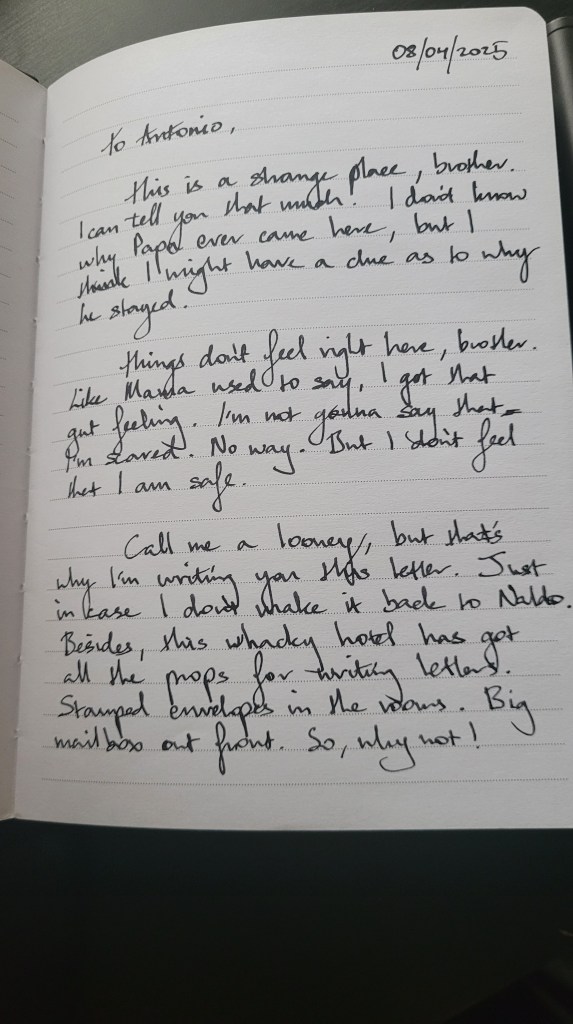 08/04/2025
To Antonio,
This is a strange place, brother.
I can tell you that much. I don't know
why Papa ever came here, but I
think I might have a clue as to why
he stayed.
Things don't feel right here, brother.
Like Mama used to say, I got that
gut feeling. I'm not gonna say that
I'm scared. No way. But I don't feel
that I am safe.
Call me a looney, but that's
why I'm writing you this letter. Just
in case I don't make it back to
Besides, this whacky hotel has got
all the props for writing letters.
Stamped envelopes in the rooms. Big
mailbox out front. So, why not!